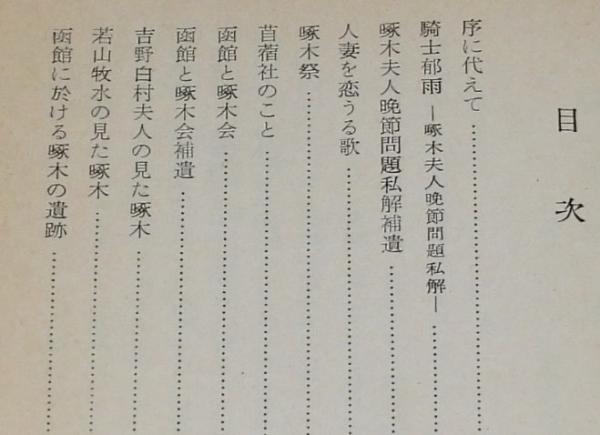 目次
序に代えて
騎士郁雨 ―啄木夫人晩節問題私解―
啄木夫人晩節問題私解補遺
人妻を恋うる歌
啄木祭
苜蓿社のこと
函館と啄木会
函館と啄木会補遺
吉野白村夫人の見た啄木
若山牧水の見た啄木
函館に於ける啄木の遺跡